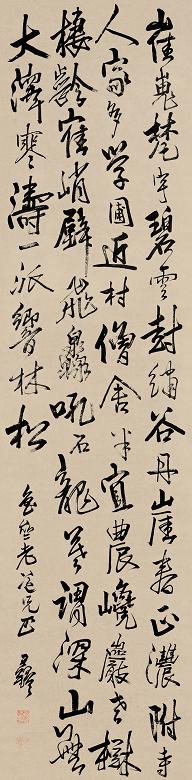 崔嵬梵宇碧雲封繡谷丹崖春正濃附寺
人家多學圃近村僧舍半宜農巉巖老樹
棲齡隺峭壁飛泉吼石龍莫謂深山無
大澤寒濤一派響林松
老道兄正